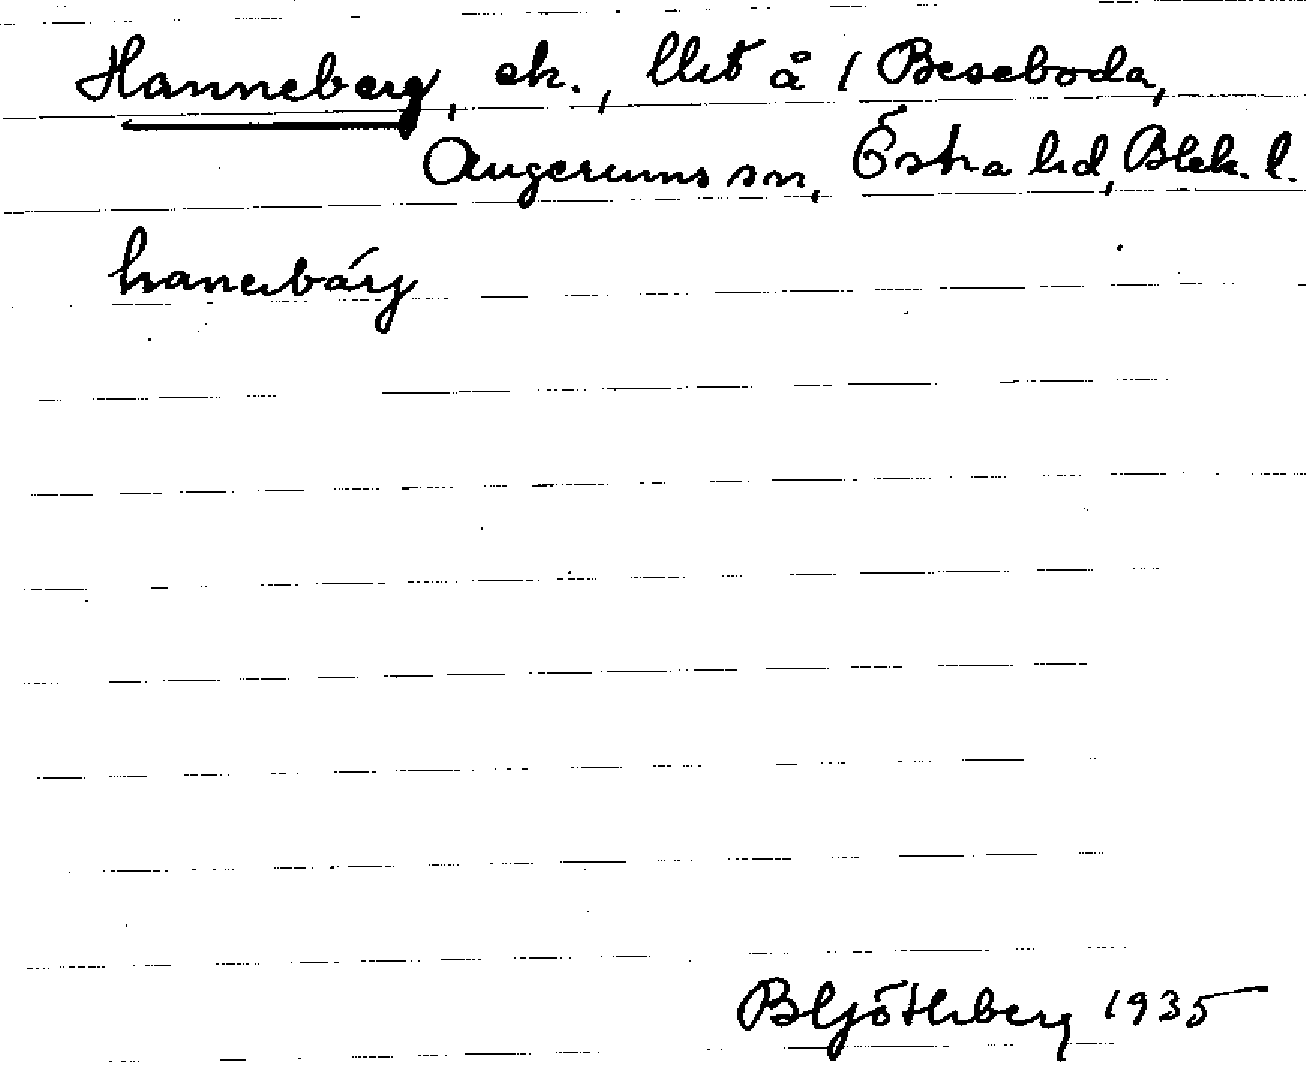 Hanneberg, ek., llht å 1 Beseboda,
Augerums sn, Östra hd, Blek. l.
hanebärj
B Götlrberg 1935